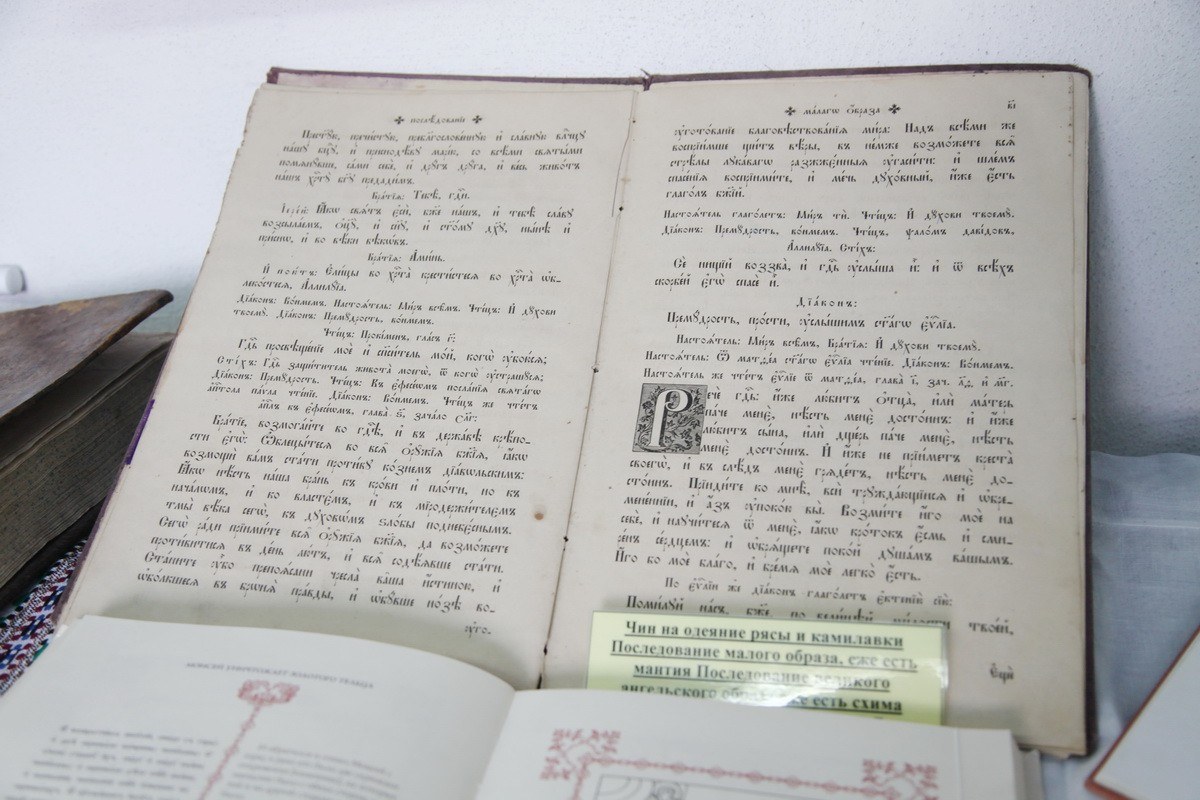 ✤ послѣдованїе ✤
Пⷭ҇тꙋ́ю, пречи́стꙋю, преблагослове́ннꙋю и҆ сла́внꙋю влⷣчцꙋ
на́шꙋ бцⷣꙋ, и҆ приснодв҃ꙋ мр҃і́ю, со всѣ́ми свѧты́ми
помѧнꙋ́вше, са́ми себѐ, и҆ дрꙋ́гъ дрꙋ́га, и҆ ве́сь живо́тъ
на́шъ хрⷭ҇тꙋ̀ бг҃ꙋ предади́мъ.
Бра́тїѧ: Тебѣ̀, гдⷭ҇и.
І҆ере́й: Ꙗ҆́кѡ свѧ́тъ є҆сѝ, бж҃е на́шъ, и҆ тебѣ̀ сла́вꙋ
возсыла́емъ, ѻ҆ц҃ꙋ̀, и҆ сн҃ꙋ, и҆ ст҃о́мꙋ дх҃ꙋ, ны́нѣ и҆
при́снѡ, и҆ во вѣ́ки вѣкѡ́въ.
Бра́тїѧ: А҆ми́нь.
И҆ пою́тъ: Є҆ли́цы во хрⷭ҇та̀ крести́стесѧ во хрⷭ҇та̀ ѡ҆б-
леко́стесѧ, А҆ллилꙋ́їа.
Дїа́конъ: Во́нмемъ. Настоѧ́тель: Ми́ръ всѣ́мъ. Чте́цъ: И҆ дꙋ́хови
твоемꙋ̀. Дїа́конъ: Премꙋ́дрость, во́нмемъ.
Чте́цъ: Проки́менъ, гла́съ г҃:
Гдⷭ҇ь просвѣще́нїе моѐ и҆ сп҃си́тель мо́й, когѡ̀ ᲂу҆бою́сѧ;
Сті́хъ: Гдⷭ҇ь защи́титель живота̀ моегѡ̀, ѿ когѡ̀ ᲂу҆страшꙋ́сѧ;
Дїа́конъ: Премꙋ́дрость. Чте́цъ: Къ є҆фесе́ємъ посла́нїѧ свѧта́гѡ
а҆п҃тола па́ѵла чте́нїе. Дїа́конъ: Во́нмемъ. Чте́цъ же чте́тъ
а҆пⷭ҇лъ къ є҆фесе́ємъ, глава̀ ѕ҃, зача́ло сл҃г:
Бра́тїе, возмога́йте во гдⷭ҇ѣ, и҆ въ держа́вѣ крѣ́по-
сти є҆гѡ̀: Ѡ҆блецы́тесѧ во всѧ̑ ѻ҆рꙋ́жїѧ бж҃їѧ, ꙗ҆́кѡ
возмощѝ ва́мъ ста́ти проти́вꙋ ко́знемъ дїа́вольскимъ:
Ꙗ҆́кѡ нѣ́сть на́ша бра́нь къ кро́ви и҆ пло́ти, но къ
нача́лѡмъ, и҆ ко власте́мъ, и҆ къ мїродержи́телемъ
тмы̀ вѣ́ка сегѡ̀, къ дꙋховѡ́мъ ѕло́бы поднебє́снымъ.
Сегѡ̀ ра́ди прїими́те всѧ̑ ѻ҆рꙋ́жїѧ бж҃їѧ, да возмо́жете
проти́витисѧ въ де́нь лю́тъ, и҆ всѧ̑ содѣ́ѧвше ста́ти.
Ста́ните ᲂу҆̀бо препоѧ́сани чре́сла ва́ша и҆́стиною, и҆
ѡ҆бо́лкшесѧ въ бронѧ̀ пра́вды, и҆ ѡ҆бꙋ́вше но́зѣ во
ᲂу҆го-
✤ ма́лагѡ ѻ҆́браза ✤ в҃і
ᲂу҆гото́ванїе благовѣствова́нїѧ ми́ра: Над̾ всѣ́ми же
воспрїи́мше щи́тъ вѣ́ры, въ не́мже возмо́жете всѧ̑
стрѣ́лы лꙋка́вагѡ разжжє́нныѧ ᲂу҆гаси́ти: и҆ шле́мъ
спасе́нїѧ воспрїими́те, и҆ ме́чь дꙋхо́вный, и҆́же є҆́сть
глаго́лъ бж҃їй.
Настоѧ́тель глаго́летъ: Ми́ръ тѝ. Чте́цъ: И҆ дꙋ́хови твоемꙋ̀.
Дїа́конъ: Премꙋ́дрость, во́нмемъ. Чте́цъ, ѱало́мъ даві́довъ.
А҆ллилꙋ́їа. Сті́хъ:
Се́й ни́щїй воззва̀, и҆ гдⷭ҇ь ᲂу҆слы́ша и҆̀: и҆ ѿ всѣ́хъ
скорбе́й є҆гѡ̀ спасѐ и҆̀.
Дїа́конъ:
Премꙋ́дрость, про́сти, ᲂу҆слы́шимъ ст҃а́гѡ є҆ѵⷢ҇лїа.
Настоѧ́тель: Ми́ръ всѣ́мъ. Бра́тїѧ: И҆ дꙋ́хови твоемꙋ̀.
Настоѧ́тель: Ѿ матѳе́а ст҃а́гѡ є҆ѵⷢ҇лїа чте́нїе. Дїа́конъ: Во́нмемъ.
Настоѧ́тель же чте́тъ є҆ѵⷢ҇лїе ѿ матѳе́а, глава̀ і҃, зач. л҃д, и҆ м҃г.
Речѐ гдⷭ҇ь: и҆́же лю́битъ ѻ҆тца̀, и҆лѝ ма́терь
па́че менє̀, нѣ́сть менє̀ досто́инъ: и҆ и҆́же
лю́битъ сы́на, и҆лѝ дще́рь па́че менє̀, нѣ́сть
менє̀ досто́инъ. И҆ и҆́же не прїи́метъ креста̀
своегѡ̀, и҆ в̾слѣ́дъ менє̀ грѧде́тъ, нѣ́сть менє̀ до-
сто́инъ. Прїиди́те ко мнѣ̀, всѝ трꙋжда́ющїисѧ и҆ ѡ҆бре-
мене́ннїи, и҆ а҆́зъ ᲂу҆поко́ю вы̀. Возми́те и҆́го моѐ на
себѐ, и҆ наꙋчи́тесѧ ѿ менє̀, ꙗ҆́кѡ кро́токъ є҆́смь и҆ сми-
ре́нъ се́рдцемъ: и҆ ѡ҆брѧ́щете поко́й дꙋша́мъ ва́шымъ.
И҆́го бо моѐ бла́го, и҆ бре́мѧ моѐ легко̀ є҆́сть.
По є҆ѵⷢ҇лїи же дїа́конъ глаго́летъ є҆ктенїю̀ сїю̀:
Поми́лꙋй на́съ, бж҃е, по вели́цѣй ми́лости твое́й,
Є҆щѐ
Чин на одеяние рясы и камилавки
Последование малого образа, еже есть
мантия Последование великого
ангельского образа, еже есть схима